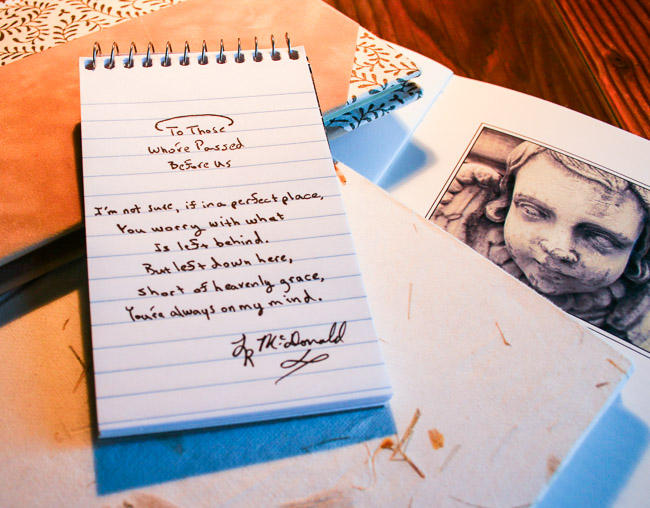 To Those
Who've Passed
Before Us
I'm not sure, if in a perfect place,
You worry with what
Is left behind.
But left down here,
short of heavenly grace,
You're always on my mind.
LR McDonald